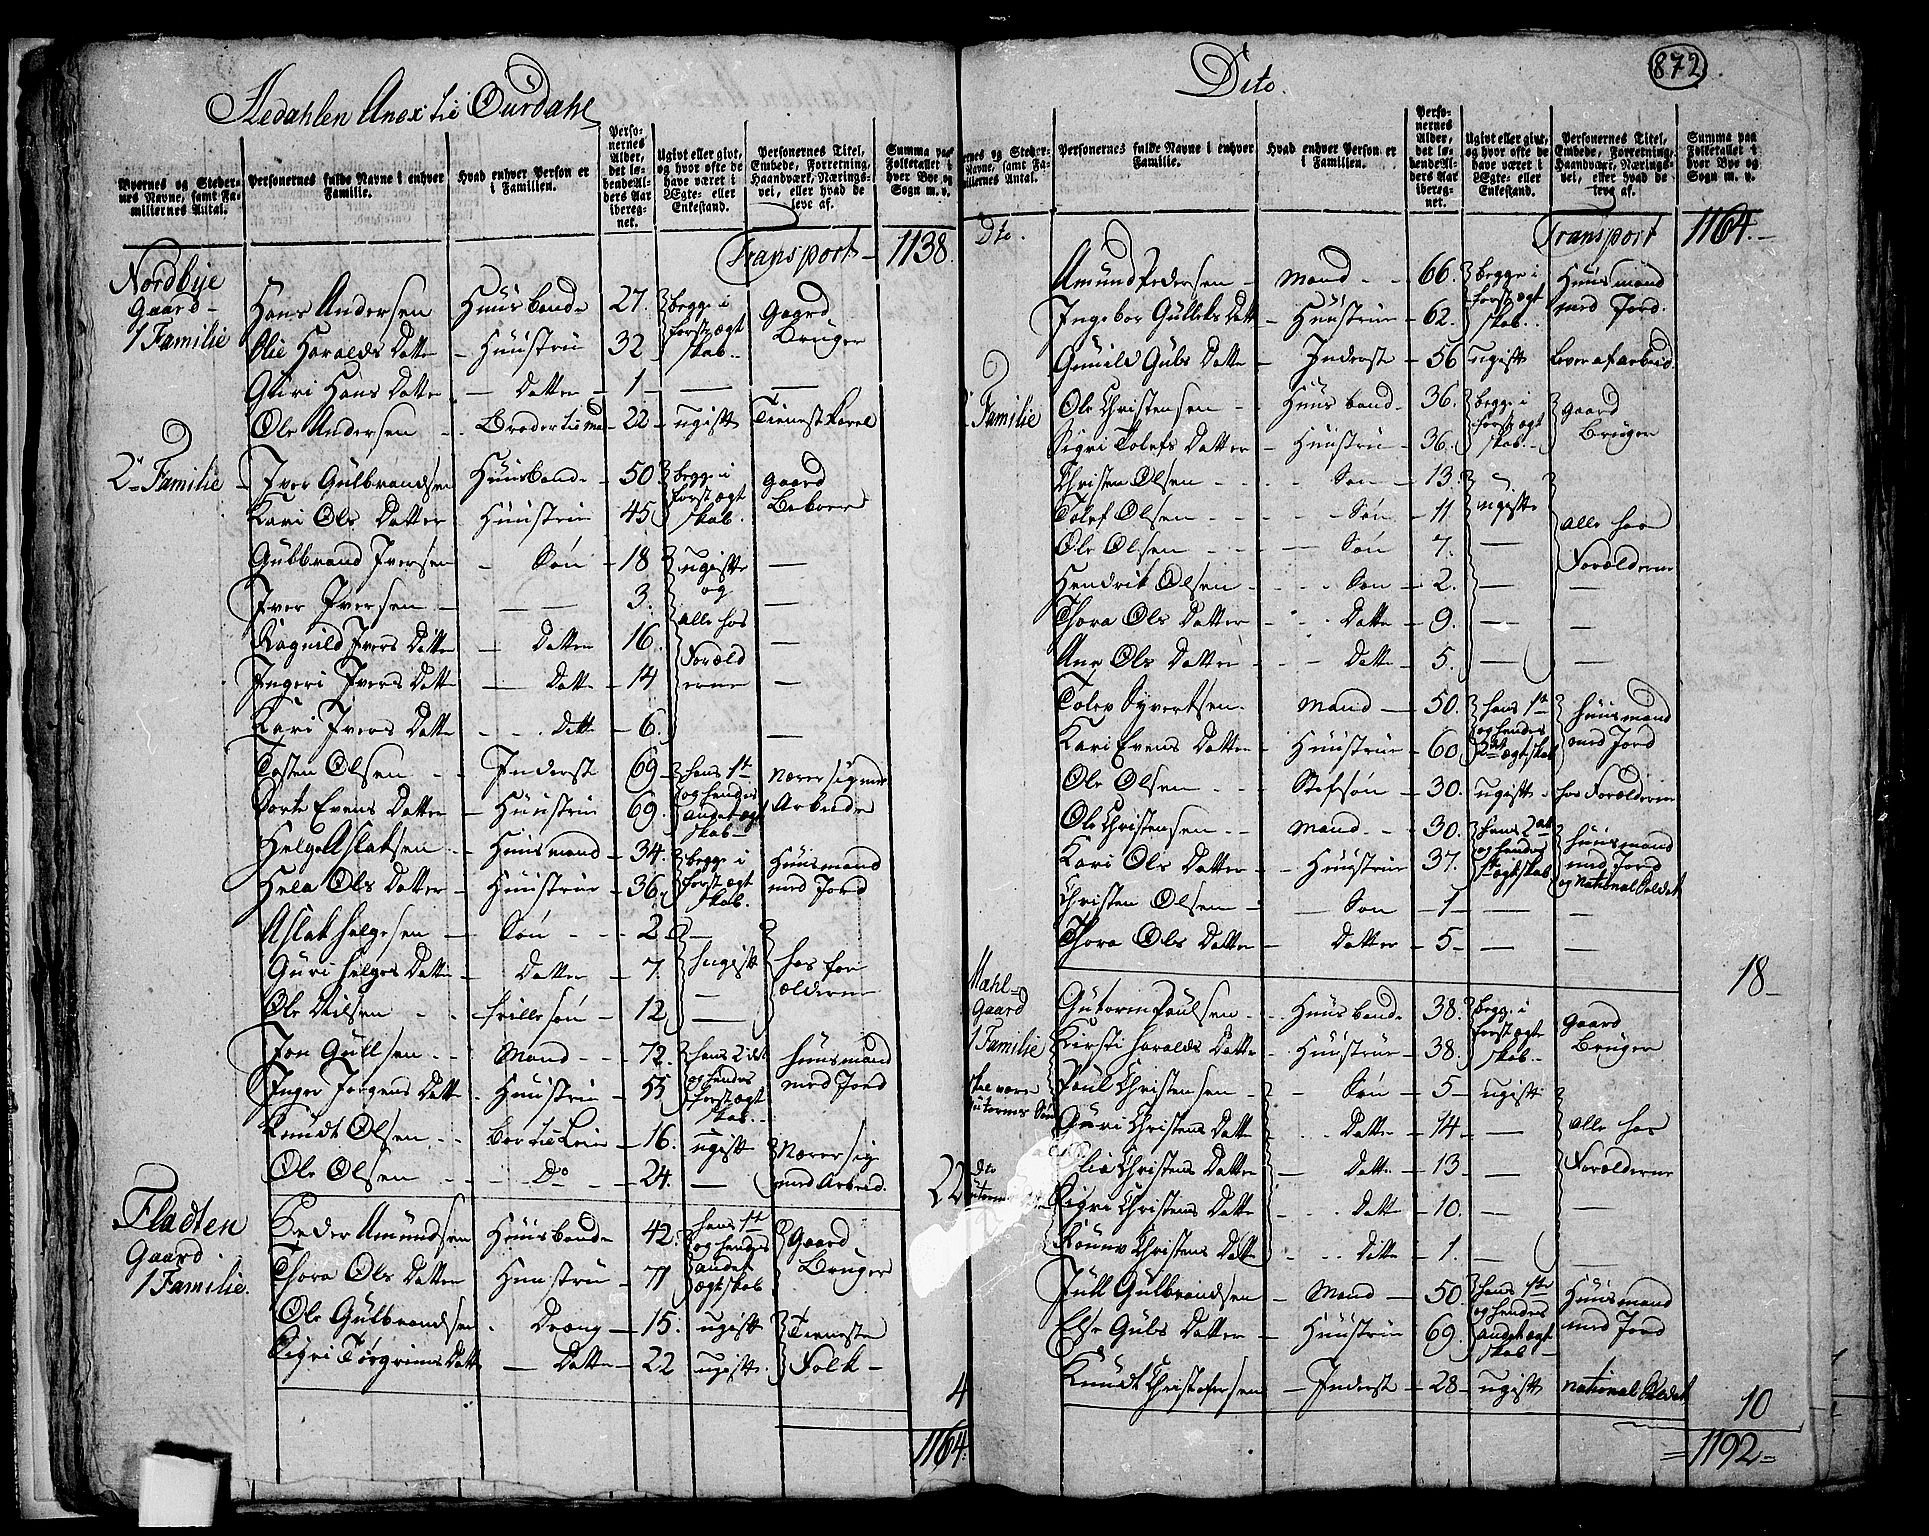 Aedahlen Anex til Ourdahl
Byernes og Stedernes Navne, samt Familiernes Antal.
Personernes fulde Navne i enhver Familie.
Hvad enhver Person er i Familien.
Personernes Alder, det løbende Alders Aar iberegnet.
Ugivt eller givt, og hvor ofte de have været i Ægte- eller Enkestand.
Personernes Titel, Embede, Forretning, Haandværk, Næringsvei, eller hvad de leve af.
Summa paa Folketallet i hver Bye og Sogn m. v.
Transport 1138.
Nordbye
Gaard
1 Familie
Hans Andersen Huusbonde 27. begge i første ægteskab Gaard Bruger
Olie Haralds Datter Huustrue 32
Guri Hans Datter Datter 1
Ole Andersen 22 ugift Tieneste Karl
2 Familie
Iver Gulbrandsen Huusbonde 50 begge i første ægteskab. Gaard Beboere
Kari Ols Datter Huustrue 45
Gulbrand Iversen Søn 18 ugifte og alle hos Forældrene
Iver Iversen 3.
Ragnild Ivers Datter Datter 16
Ingeri Ivers Datter Datter 14
Kari Ivers Datter Datter 6
Tosten Olsen Inderst 69 hans 1ste og hendes andet ægteskab Nærer sig med Arbeide
Dorte Evens Datter Huustrue 69
Helge Aslaksen Huusmand 34. begge i første ægteskab. Huusmand med Jord
Hela Ols Datter Huustrue 36
Aslak Helgesen Søn 2 ugift hos forældrene
Guri Helges Datter Datter 7.
Ole Nilsen Frillesøn 12
Jon Gullsen Mand 72. hans 2det og hendes første ægteskab Huusmand med Jord
Inger Jorgens Datter Huustrue 55
Knudt Olsen 16. ugift Nærer sig med Arbeid.
Ole Olsen Do 24.
22
Fladten
Gaard
1 Familie.
Peder Amundsen Huusbonde 42. hans 1ste og hendes andet ægteskab Gaard Bruger
Thora Ols Datter Huustrue 71
Ole Gulbrandsen Dreng 15. ugift Tieneste Folk
Sigri Torgrims Datter Datter 22 ugift
4
1164.
Dito.
872
Personernes fulde Navne i enhver Familie.
Hvad enhver Person er i Familien.
Personernes Alder, det løbende Alders Aar iberegnet.
Ugivt eller givt, og hvor ofte de have været i Ægte- eller Enkestand.
Personernes Titel, Embede, Forretning, Haandværk, Næringsvei, eller hvad de leve af.
Summa paa Folketallet i hver Bye og Sogn m. v.
Dto. Transport 1164.
Amund Pedersen Mand 66. begge i første ægteskab Huusmand med Jord.
Ingebor Gulleks Datter Huustrue 62.
Gunild Gulbs Datter Inderst 56 ugift Lever af arbeid
Familie
Ole Christensen Huusbonde 36. begge i første ægteskab Gaard Bruger
Sigri Tolefs Datter Huustrue 36.
Christen Olsen Søn 13. ugifte alle hos Forældrene
Tolef Olsen Søn 11
Ole Olsen Søn 7.
Hendrik Olsen Søn 2.
Thora Ols Datter Datter 9.
Ane Ols Datter Datter 5.
Tolev Syvertsen Mand 50. hans 1ste og hendes 2det ægteskab Huusmand med Jord
Kari Evens Datter Huustrue 60
Ole Olsen Stefsøn 30. ugift hos Forældrene
Ole Christensen Mand 30. hans 2det og hendes 1ste ægteskab Huusmand med Jord og National Soldat
Kari Ols Datter Huustrue 37.
Christen Olsen Søn 1
Thora Ols Datter Datter 5
18
Mahl-
Gaard
1 Familie
Gutorm Poulsen Huusbonde 38. begge i første ægteskab Gaard Bruger
Kirsti Haralds Datter Huustrue 38.
skal være Gutorms Søn
Poul Christensen Søn 5 ugift alle hos Forældrene
Guri Christens Datter Datter 14
Dto
Olia Christens Datter Datter 13
Sigri Christens Datter Datter 10.
Rønnv Christens Datter Datter 1.
Jull Gulbrandsen Mand 50. hans 1ste og hendes Andet ægteskab Huusmand med Jord
Else Gulbs Datter Huustrue 69.
Knudt Christofersen Inderst 28 ugift National Soldat
10
1192